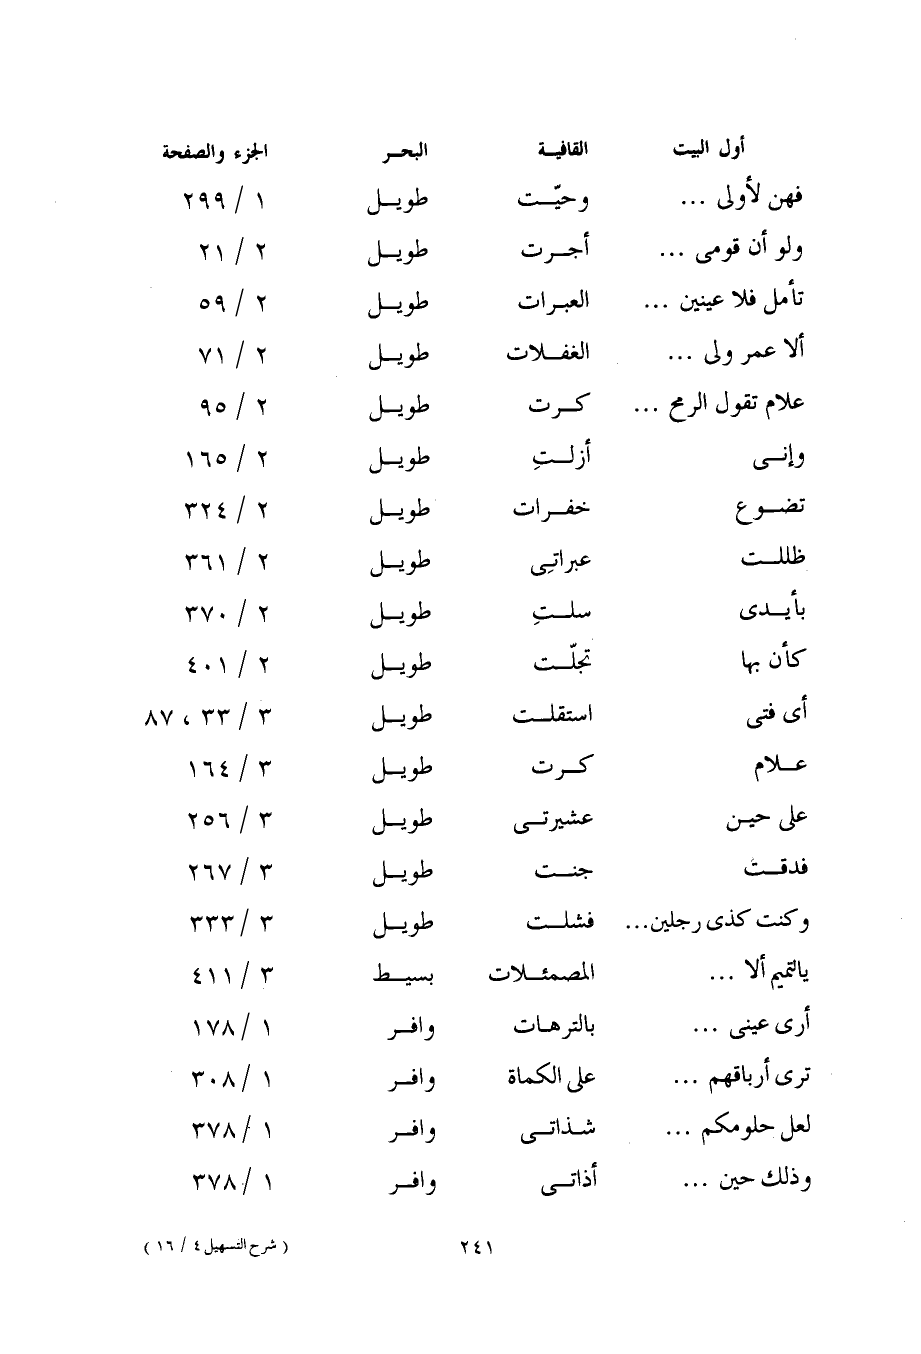 أول البيت القافية البحر الجزء والصفحة
فهن لأولى ... وحيّت طويل ١ / ٢٩٩
ولو أن قومى ... أجرت طويل ٢ / ٢١
تأمل فلا عينين ... العبرات طويل ٢ / ٥٩
ألا عمر ولى ... الغفلات طويل ٢ / ٧١
علام تقول الرمح ... كرت طويل ٢ / ٩٥
وإنى أزلتِ طويل ٢ / ١٦٥
تضوع خفرات طويل ٢ / ٣٢٤
ظللت عبراتِى طويل ٢ / ٣٦١
بأيدى سلتِ طويل ٢ / ٣٧٠
كأن بها تجلّت طويل ٢ / ٤٠١
أى فتى استقلت طويل ٣ / ٣٣ ، ٨٧
علام كرت طويل ٣ / ١٦٤
على حين عشيرتى طويل ٣ / ٢٥٦
فدقت جنت طويل ٣ / ٢٦٧
وكنت كذى رجلين... فشلت طويل ٣ / ٣٣٣
يالتميم ألا ... المصمئلات بسيط ٣ / ٤١١
أرى عينى ... بالترهات وافر ١ / ١٧٨
ترى أرباقهم ... على الكماة وافر ١ / ٣٠٨
لعل حلومكم ... شذاتى وافر ١ / ٣٧٨
وذلك حين ... أذاتى وافر ١ / ٣٧٨
٢٤١ ( شرح التسهيل ٤ / ١٦ )